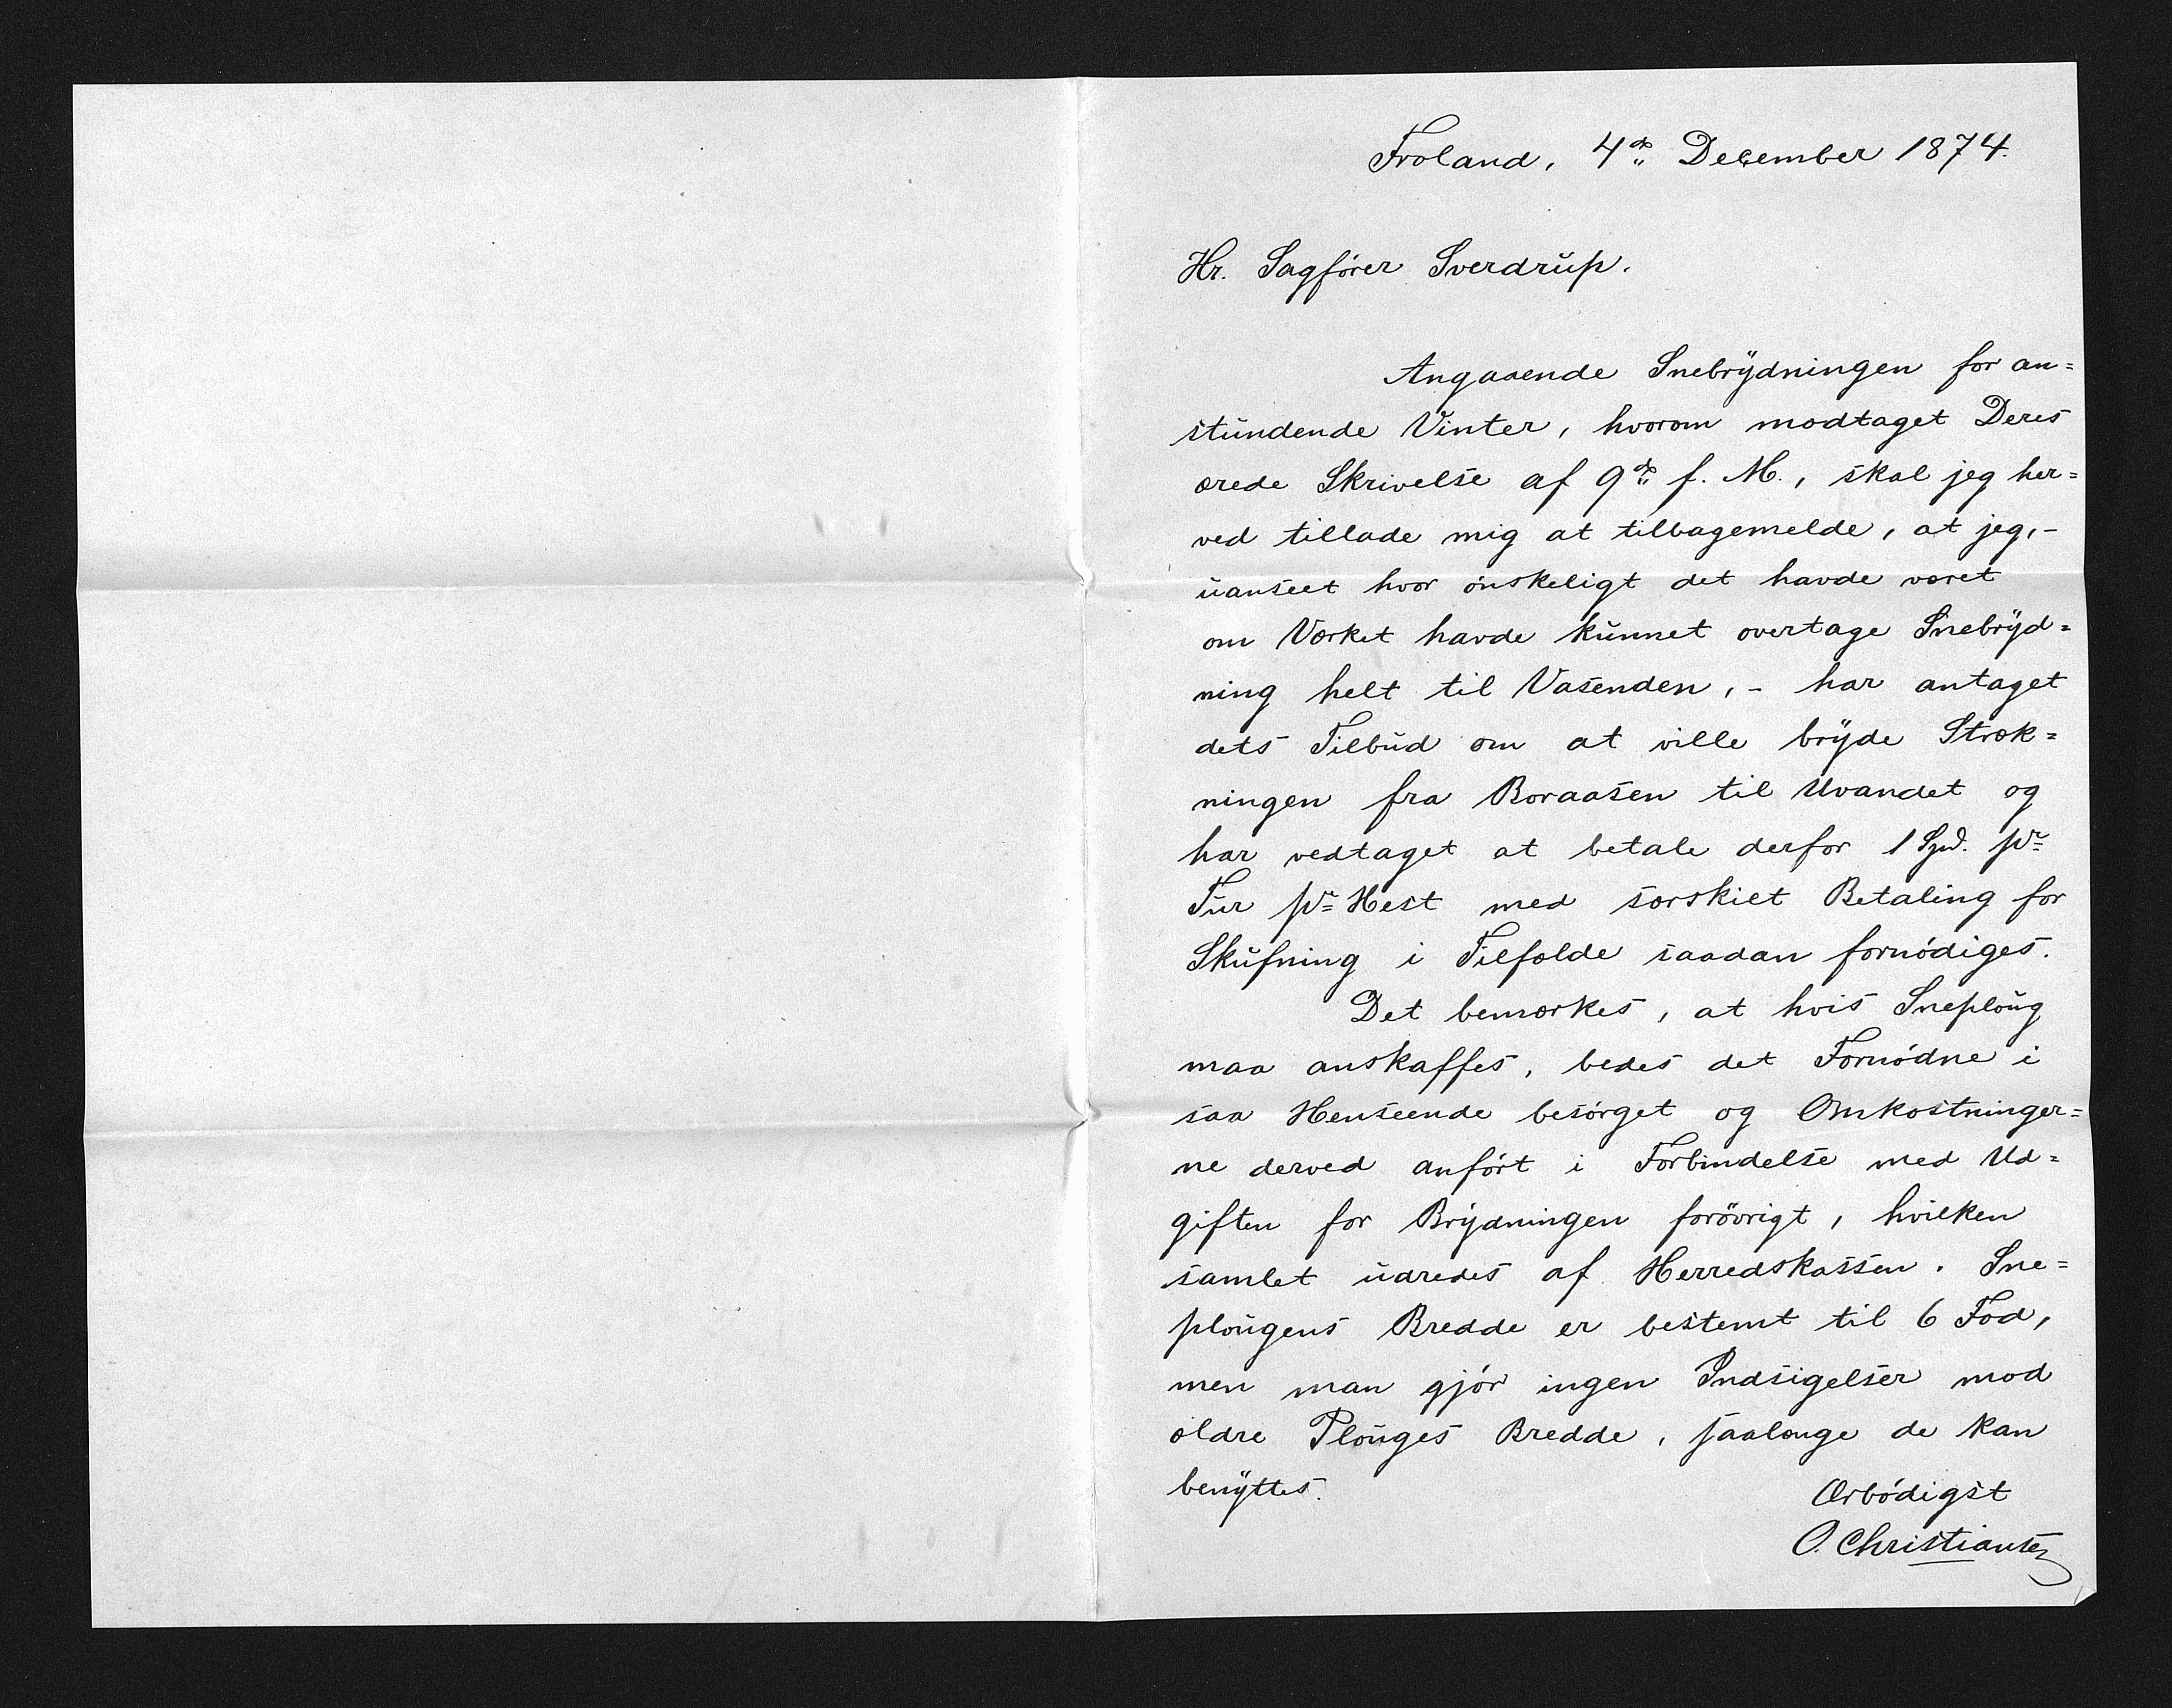 Froland, 4de December 1874.
Hr. Sagfører Sverdrup.
Angaaende Snebrydningen for an=
stundende Vinter, hvorom modtaget Deres
ærede Skrivelse af 9de f. M., skal jeg her=
ved tillade mig at tilbagemelde, at jeg, -
uanseet hvor ønskeligt det havde været
om Værket havde kunnet overtage Snebryd=
ning helt til Vasenden, - har antaget
dets Tilbud om at ville bryde Stræk=
ningen fra Boraasen til Uvandet og
har vedtaget at betale derfor 1 Spd. pr
Tur pr Hest med særskiet Betaling for
Skufning i Tilfælde saadan fornødiges.
Det bemærkes, at hvis Sneploug
maa anskaffes, bedes det Fornødne i
saa Henseende besørget og Omkostninger=
ne derved anført i Forbindelse med Ud=
giften for Brydningen forøvrigt, hvilken
samlet udredes af Herredskassen. Sne=
plougens Bredde er bestemt til 6 Fod,
men man gjør ingen Indsigelser mod
ældre Plouges Bredde, saalænge de kan
benyttes.
Ærbødigst
O. Christiansen